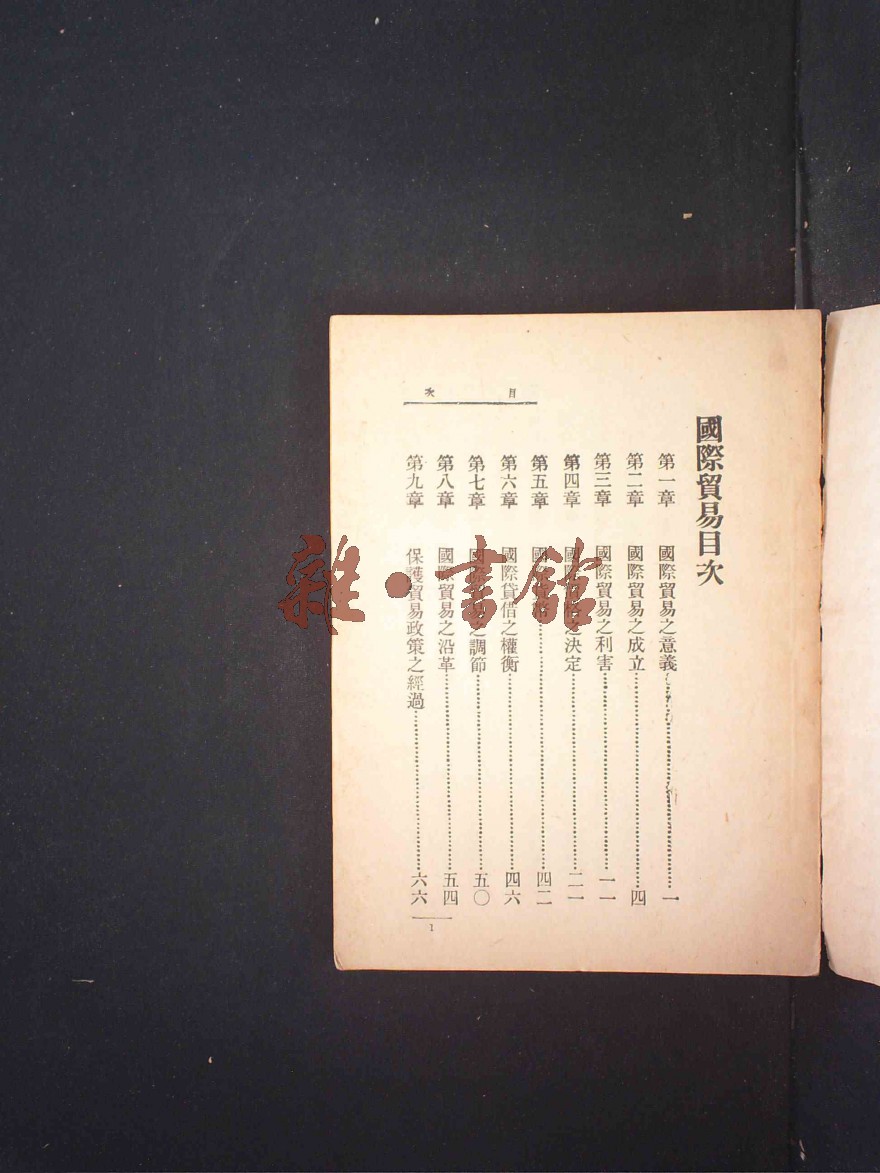 國際貿易目次
第一章 國際貿易之意義……一
第二章 國際貿易之成立……四
第三章 國際貿易之利害……一一
第四章 國際之決定……二一
第五章 國際……四二
第六章 國際貸借之權衡……四六
第七章 國際貿易之調節……五〇
第八章 國際貿易之沿革……五四
第九章 保護貿易政策之經過……六六
目次
1
雜·書館